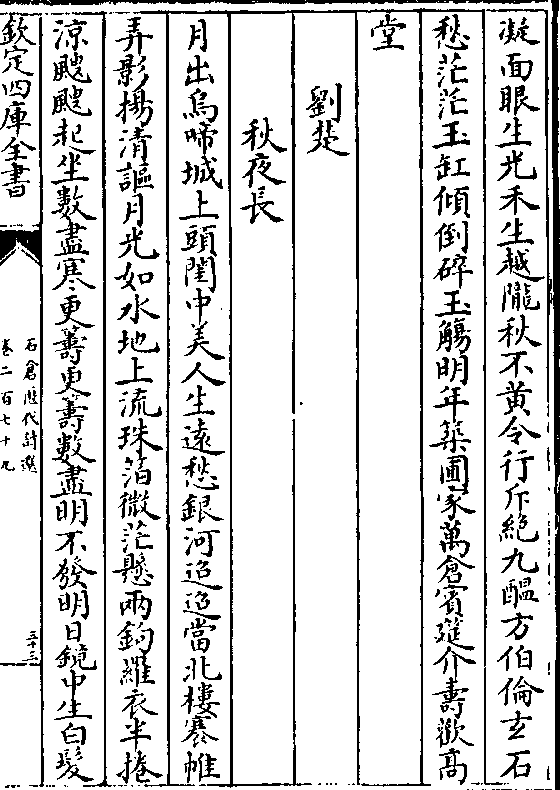 凝面眼生光禾生越隴秋不黄令行斥絶九醖方伯倫玄石
愁茫茫玉缸傾倒碎玉觴明年築圃家萬倉賓筵介壽歡髙
堂
劉楚
秋夜長
月出烏啼城上頭閨中美人生遠愁銀河迢迢當北樓褰帷
弄影揚清謳月光如水地上流珠箔微茫懸兩鈎羅衣半捲
涼颸颸起坐數盡寒更籌更籌數盡明不發明日鏡中生白髮
欽定四庫全書
石倉歴代詩選
卷二百七十九
三十三